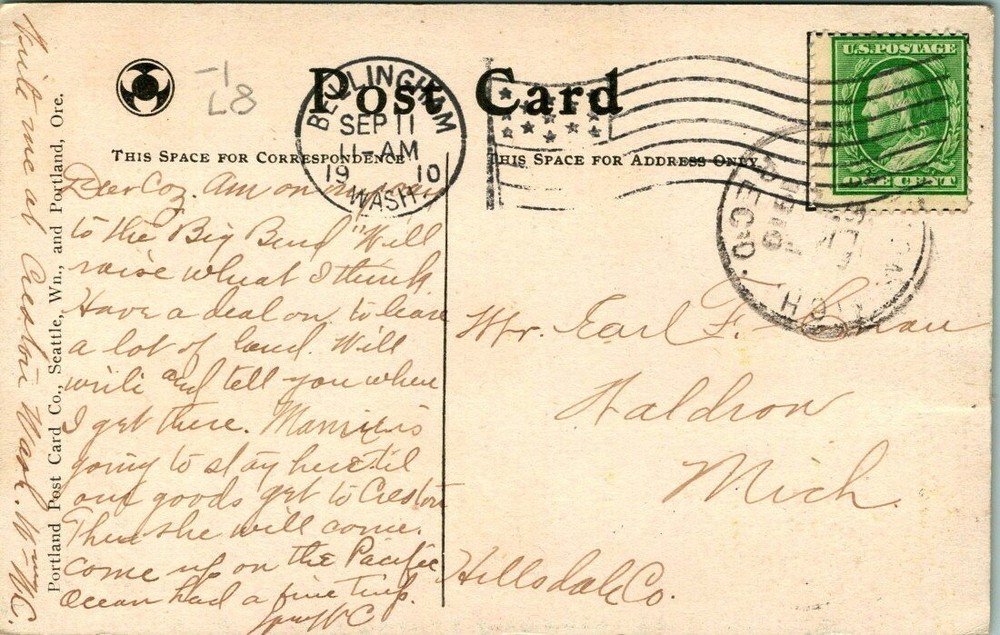 Post Card
THIS SPACE FOR CORRESPONDENCE
THIS SPACE FOR ADDRESS ONLY
BELLINGHAM
SEP 11
11-AM
19 10
WASH.
U.S. POSTAGE
ONE CENT
REC'D.
MICH
Dear Coz. Am on my way
to the Big Bend "Will
raise wheat I think
Have a deal on to lease
a lot of land. Will
write and tell you when
I get there. Mamie is
going to stay here til
our goods get to Creston
Then she will come.
Come up on the Pacific
Ocean had a fine trip.
Write me at Creston Wash.
Portland Post Card Co., Seattle, Wn., and Portland, Ore.
Mr. Earl F.
Waldron
Mich.
Hillsdale Co.